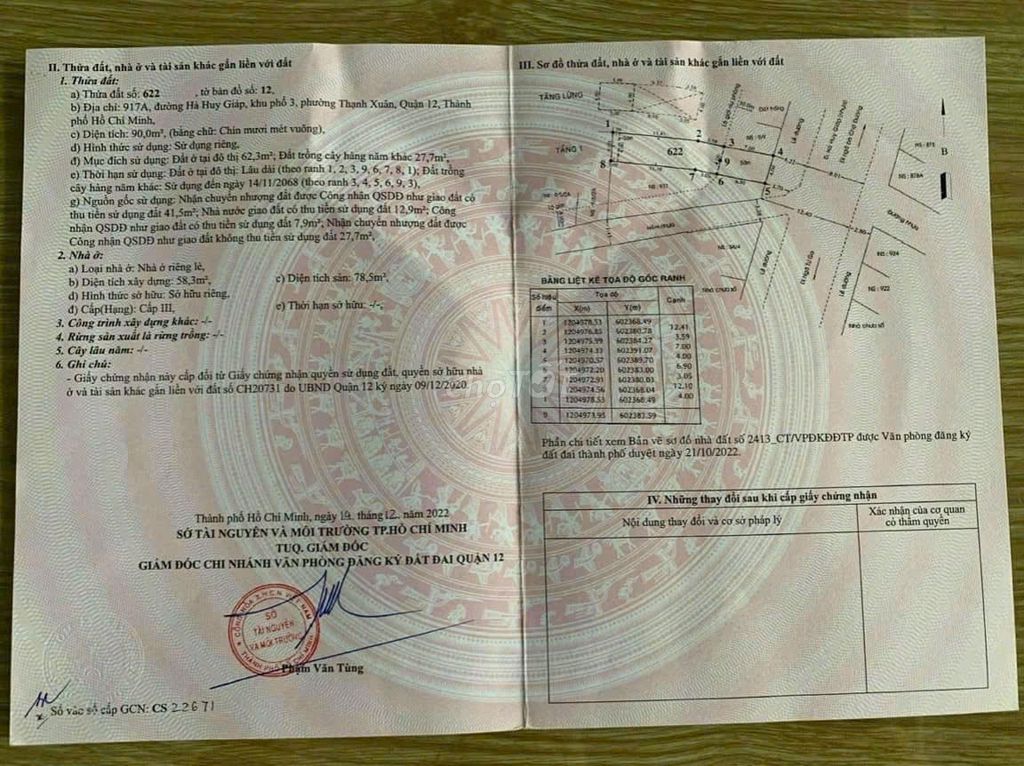 II. Thửa đất, nhà ở và tài sản khác gắn liền với đất
1. Thửa đất:
a) Thửa đất số: 622 , tờ bản đồ số: 12,
b) Địa chỉ: 917A, đường Hà Huy Giáp, khu phố 3, phường Thạnh Xuân, Quận 12, Thành
phố Hồ Chí Minh,
c) Diện tích: 90,0m², (bằng chữ: Chín mươi mét vuông),
d) Hình thức sử dụng: Sử dụng riêng,
đ) Mục đích sử dụng: Đất ở tại đô thị 62,3m²; Đất trồng cây hàng năm khác 27,7m²,
e) Thời hạn sử dụng: Đất ở tại đô thị: Lâu dài (theo ranh 1, 2, 3, 9, 6, 7, 8, 1); Đất trồng
cây hàng năm khác: Sử dụng đến ngày 14/11/2068 (theo ranh 3, 4, 5, 6, 9, 3),
g) Nguồn gốc sử dụng: Nhận chuyển nhượng đất được Công nhận QSDĐ như giao đất có
thu tiền sử dụng đất 41,5m²; Nhà nước giao đất có thu tiền sử dụng đất 12,9m²; Công
nhận QSDĐ như giao đất có thu tiền sử dụng đất 7,9m²; Nhận chuyển nhượng đất được
Công nhận QSDĐ như giao đất không thu tiền sử dụng đất 27,7m²,
2. Nhà ở:
a) Loại nhà ở: Nhà ở riêng lẻ,
b) Diện tích xây dựng: 58,3m², c) Diện tích sàn: 78,5m²,
d) Hình thức sở hữu: Sở hữu riêng,
đ) Cấp(Hạng): Cấp III, e) Thời hạn sở hữu: -/-,
3. Công trình xây dựng khác: -/-
4. Rừng sản xuất là rừng trồng: -/-
5. Cây lâu năm: -/-
6. Ghi chú:
- Giấy chứng nhận này cấp đổi từ Giấy chứng nhận quyền sử dụng đất, quyền sở hữu nhà
ở và tài sản khác gắn liền với đất số CH20731 do UBND Quận 12 ký ngày 09/12/2020.
Thành phố Hồ Chí Minh, ngày 19 tháng 12 năm 2022
SỞ TÀI NGUYÊN VÀ MÔI TRƯỜNG TP.HỒ CHÍ MINH
TUQ. GIÁM ĐỐC
GIÁM ĐỐC CHI NHÁNH VĂN PHÒNG ĐĂNG KÝ ĐẤT ĐAI QUẬN 12
CỘNG HÒA X.H.C.N VIỆT NAM
SỞ
TÀI NGUYÊN
VÀ MÔI TRƯỜNG
THÀNH PHỐ HỒ CHÍ MINH
Phạm Văn Tùng
Số vào sổ cấp GCN: CS 22671
III. Sơ đồ thửa đất, nhà ở và tài sản khác gắn liền với đất
TẦNG LỬNG
TẦNG 1
1
2
3
4
5
6
7
8
9
622
12.41
7.00
Sân
Đất trống
Lề đường
Đ. Hà Huy Giáp (nhựa)
B
NS: 875
NS: 878A
Đường nhựa
NS: 924
NS: 922
Nhà chưa số
Lề đường
Hẻm nhựa
Nhà chưa số
12.40
BẢNG LIỆT KÊ TỌA ĐỘ GÓC RANH
Số hiệu điểm Tọa độ Cạnh
X(m) Y(m)
1 1204978.53 602368.49
12.41
2 1204976.85 602380.78
3.59
3 1204975.99 602384.27
7.00
4 1204974.33 602391.07
4.00
5 1204970.57 602389.70
6.90
6 1204972.20 602383.00
3.05
7 1204972.91 602380.03
12.10
8 1204974.56 602368.04
4.00
1 1204978.53 602368.49
9 1204973.95 602383.59
Phần chi tiết xem Bản vẽ sơ đồ nhà đất số 2413_CT/VPĐKĐĐTP được Văn phòng đăng ký
đất đai thành phố duyệt ngày 21/10/2022.
IV. Những thay đổi sau khi cấp giấy chứng nhận
Nội dung thay đổi và cơ sở pháp lý
Xác nhận của cơ quan
có thẩm quyền